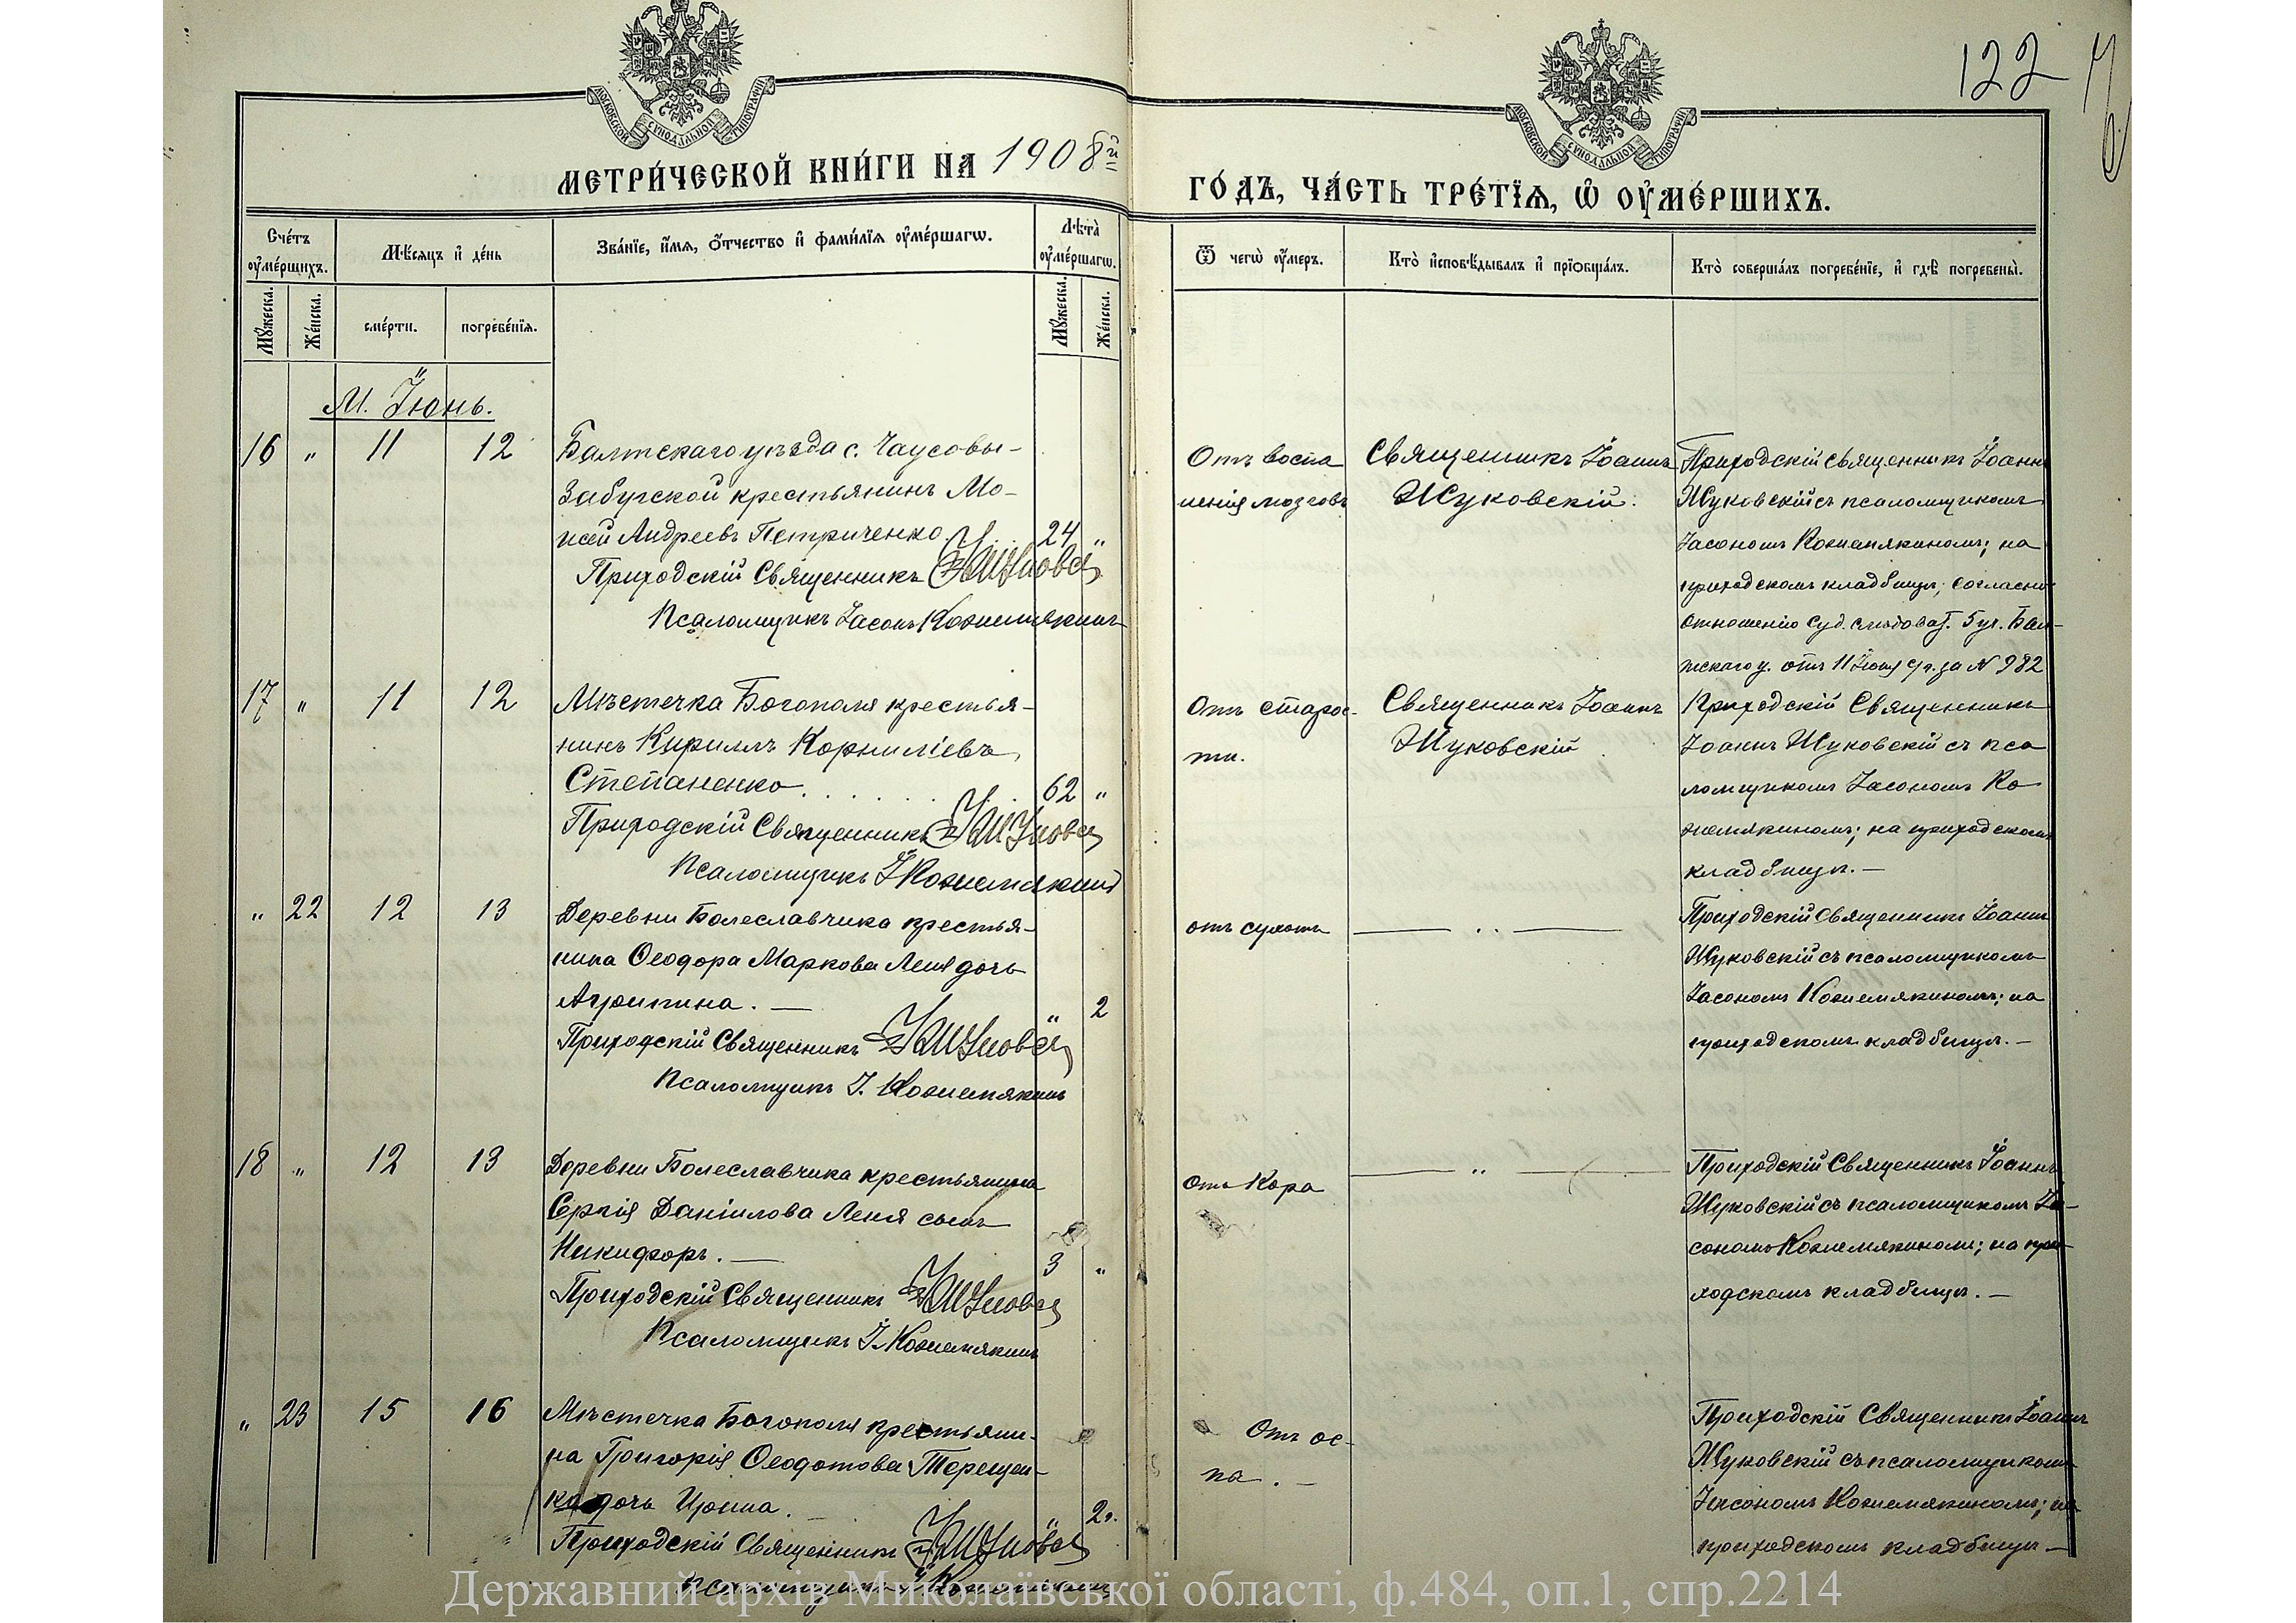 122
МОСКОВСКОЙ СѴНОДАЛЬНОЙ ТИПОГРАФІИ
МОСКОВСКОЙ СѴНОДАЛЬНОЙ ТИПОГРАФІИ
МЕТРИ́ЧЕСКОЙ КНИ́ГИ НА 1908й ГО́ДЪ, ЧА́СТЬ ТРЕ́ТЇѦ, Ѡ҆ ОУ҆МЕ́РШИХЪ.
Сче́тъ оу҆ме́ршихъ.
Мѣ́сяцъ и҆ де́нь
Зва́нїе, и҆́мѧ, ѻ҆́тчество и҆ фами́лїѧ оу҆ме́ршагѡ.
Лѣ́та оу҆ме́ршагѡ.
Ѿ чегѡ̀ оу҆́меръ.
Кто̀ и҆сповѣ́дывалъ и҆ прїѡбща́лъ.
Кто̀ соверша́лъ погребе́нїе, и҆ гдѣ̀ погребены̀.
Мꙋ́жеска. Же́нска.
сме́рти. погребе́нїѧ.
Мꙋ́жеска. Же́нска.
М. Іюнь.
16 " 11 12
Балтскаго уѣзда с. Чаусовы-
Забугской крестьянинъ Мо-
исей Андреевъ Петриченко. 24 "
Приходскій Священникъ
Псаломщикъ Іасонъ Кожемякинъ
Отъ воспа
ленія мозговъ
Священникъ Іоаннъ
Жуковскій.
Приходскій священникъ Іоаннъ
Жуковскій съ псаломщикомъ
Іасономъ Кожемякинымъ; на
приходскомъ кладбищѣ; согласно
отношенію Суд. Слѣдоват. 5 уч. Бал-
тскаго у. отъ 11 Іюня с/г. за N 982
17 " 11 12
Мѣстечка Богополя крестья-
нинъ Кириллъ Корниліевъ
Степаненко. 62 "
Приходскій Священникъ
Псаломщикъ І Кожемякинъ
Отъ старос-
ти.
Священникъ Іоаннъ
Жуковскій
Приходскій Священникъ
Іоаннъ Жуковскій съ пса
ломщикомъ Іасономъ Ко
жемякиномъ; на приходскомъ
кладбищѣ. —
" 22 12 13
Деревни Болеславчика крестья-
нина Ѳеодора Маркова Леня дочь
Агрипина. — " 2
Приходскій Священникъ
Псаломщикъ І. Кожемякинъ
отъ сухотъ
— " —
Приходскій Священникъ Іоаннъ
Жуковскій съ псаломщикомъ
Іасономъ Кожемякиномъ; на
приходскомъ кладбищѣ. —
18 " 12 13
Деревни Болеславчика крестьянина
Сергія Даніилова Леня сынъ
Никифоръ. — 3 "
Приходскій Священникъ
Псаломщикъ І. Кожемякинъ
Отъ Кора
— " —
Приходскій Священникъ Іоаннъ
Жуковскій съ псаломщикомъ Іа-
сономъ Кожемякиномъ; на при-
ходскомъ кладбищѣ. —
" 23 15 16
Мѣстечка Богополя крестьяни-
на Григорія Ѳеодотова Терещен-
ка дочь Ирина. " 2.
Приходскій Священникъ
Псаломщикъ І Кожемякинъ
Отъ ос-
пы. —
Приходскій Священникъ Іоаннъ
Жуковскій съ псаломщикомъ
Іасономъ Кожемякиномъ; на
приходскомъ кладбищѣ —
Державний архів Миколаївської області, ф.484, оп.1, спр.2214